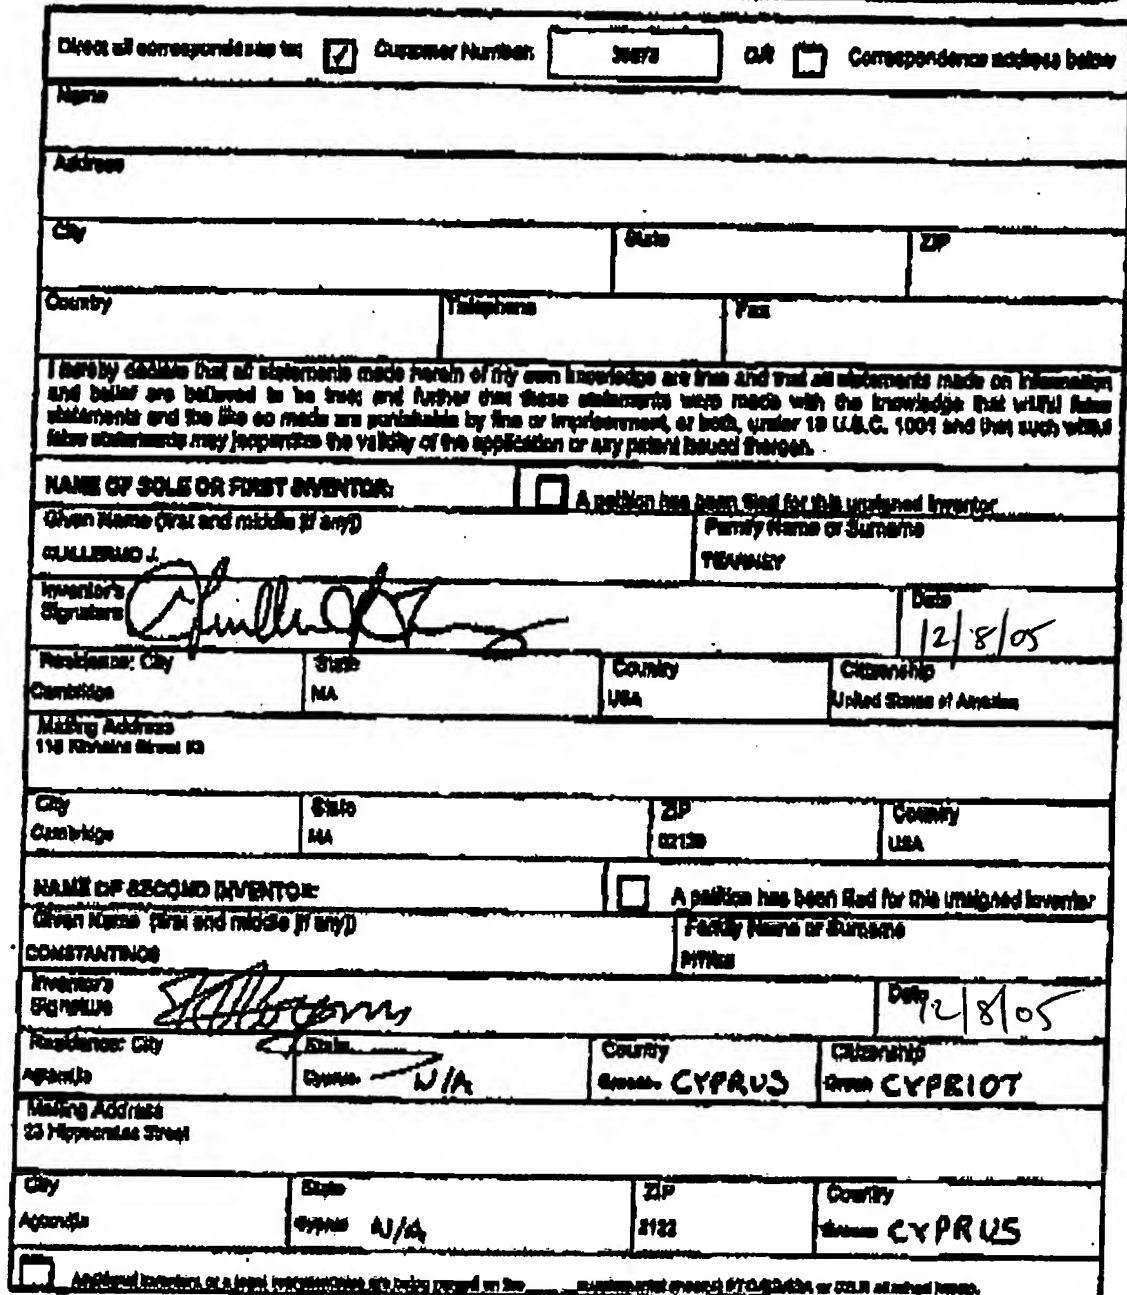 Direct all correspondence to: Customer Number: OR Correspondence address below
Name
Address
City State ZIP
Country Telephone Fax
I hereby declare that all statements made herein of my own knowledge are true and that all statements made on information
and belief are believed to be true; and further that these statements were made with the knowledge that willful false
statements and the like so made are punishable by fine or imprisonment, or both, under 18 U.S.C. 1001 and that such willful
false statements may jeopardize the validity of the application or any patent issued thereon.
NAME OF SOLE OR FIRST INVENTOR: A petition has been filed for this unsigned inventor
Given Name (first and middle [if any]) Family Name or Surname
GUILLERMO J. TEARNEY
Inventor's Date
Signature 12/8/05
Residence: City State Country Citizenship
Cambridge MA USA United States of America
Mailing Address
Street
City State ZIP Country
Cambridge MA 02139 USA
NAME OF SECOND INVENTOR: A petition has been filed for this unsigned inventor
Given Name (first and middle [if any]) Family Name or Surname
CONSTANTINOS
Inventor's Date
Signature 12/8/05
Residence: City State Country Citizenship
Cyprus N/A Greece CYPRUS Greek CYPRIOT
Mailing Address
23 Hippocrates Street
City State ZIP Country
Cyprus N/A 2122 Greece CYPRUS
Additional inventors or a legal representative are being named on the supplemental sheet(s) or attached hereto.